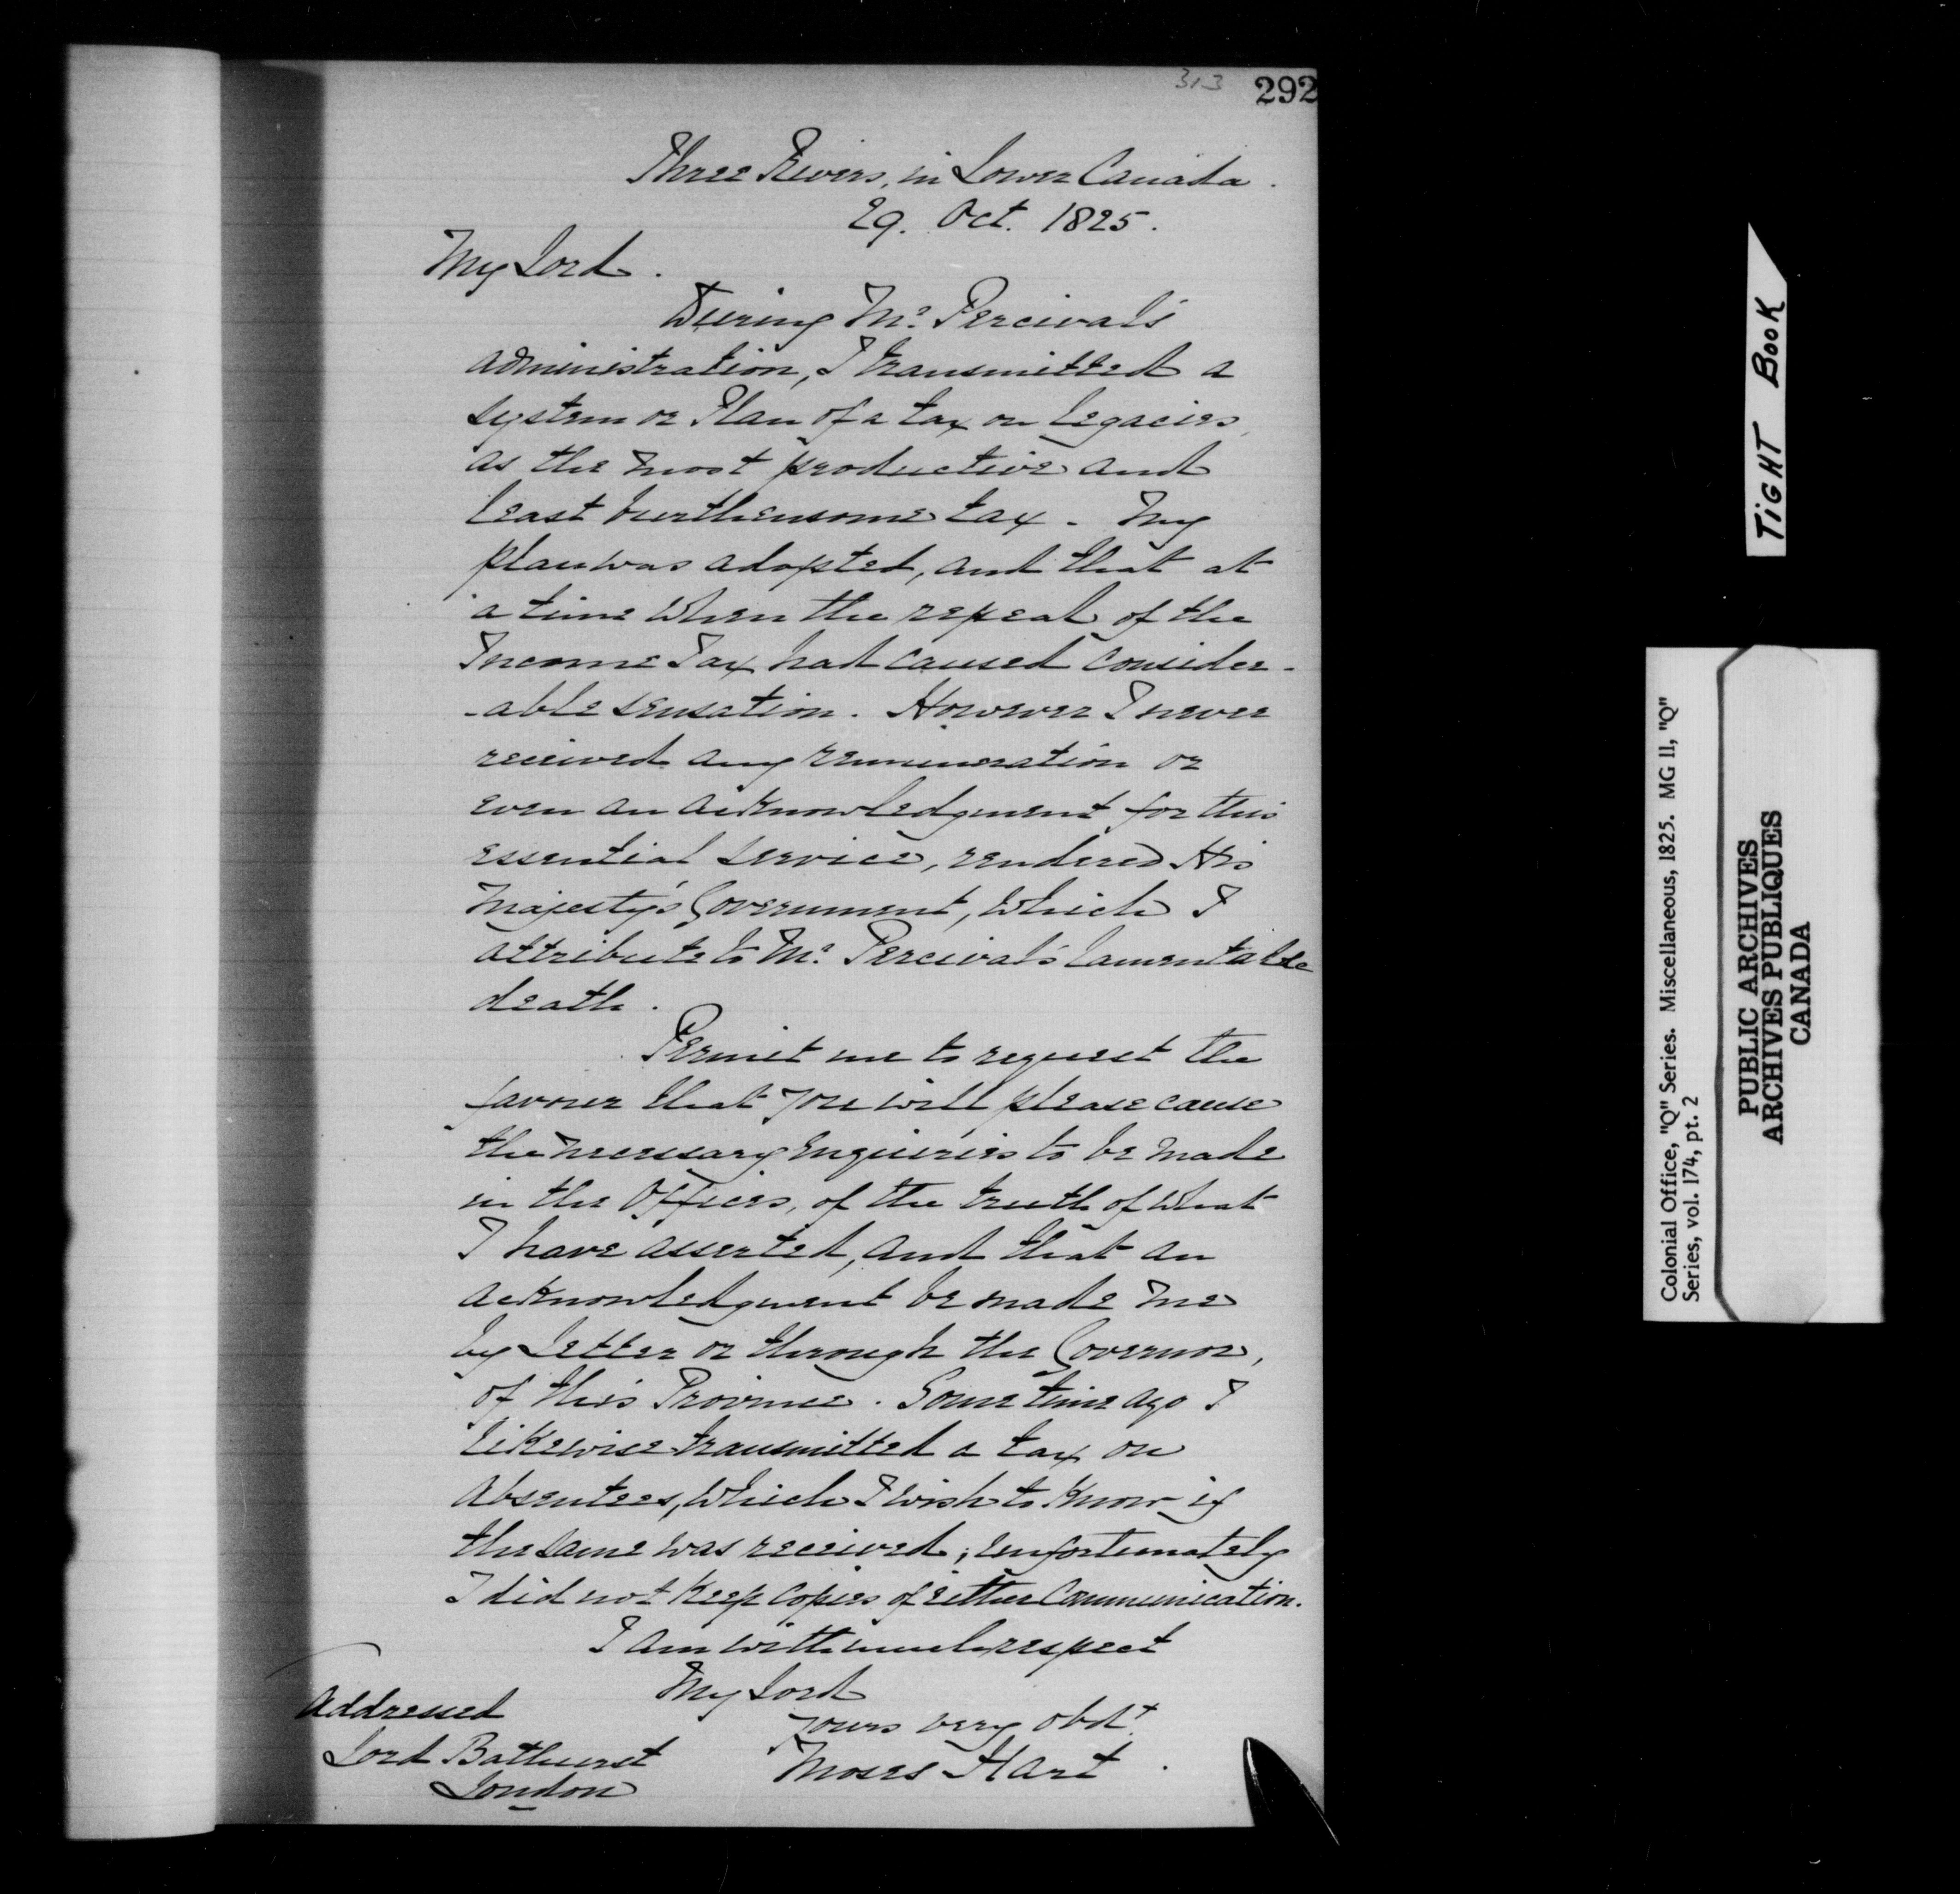 313 292
Three Rivers, in Lower Canada.
29. Oct. 1825.
My Lord.
During Mr. Percival's
administration, I transmitted a
system or Plan of a tax on legacies,
as the most productive and
least burthensome tax. My
plan was adopted, and that at
a time when the repeal of the
Income Tax had caused consider-
-able sensation. However I never
received any remuneration or
even an acknowledgment for this
essential service, rendered His
Majesty's Government, which I
attribute to Mr. Percival's lamentable
death.
Permit me to request the
favour that you will please cause
the necessary enquiries to be made
in the Offices, of the truth of what
I have asserted, and that an
acknowledgment be made me
by letter or through the Governor,
of this Province. Some time ago I
likewise transmitted a tax on
absentees, which I wish to know if
the same was received; unfortunately
I did not keep copies of either Communication.
I am with much respect
My Lord
yours very obdt.
Moses Hart.
Addressed
Lord Bathurst
London
TIGHT BOOK
Colonial Office, "Q" Series. Miscellaneous, 1825. MG II, "Q"
Series, vol. 174, pt. 2
PUBLIC ARCHIVES
ARCHIVES PUBLIQUES
CANADA